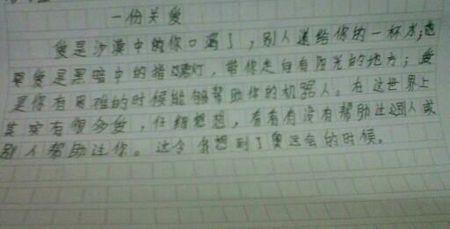 一份关爱
爱是沙漠中的你口渴了，别人递给你的一杯水；也
是黑暗中的指路灯，带你走向有阳光的地方；爱
是你有困难的时候能够帮助你的机器人。在这世界上
其实有很多爱，仔细想想，看看有没有帮助过别人或
别人帮助过你。这令我想到了奥运会的时候。